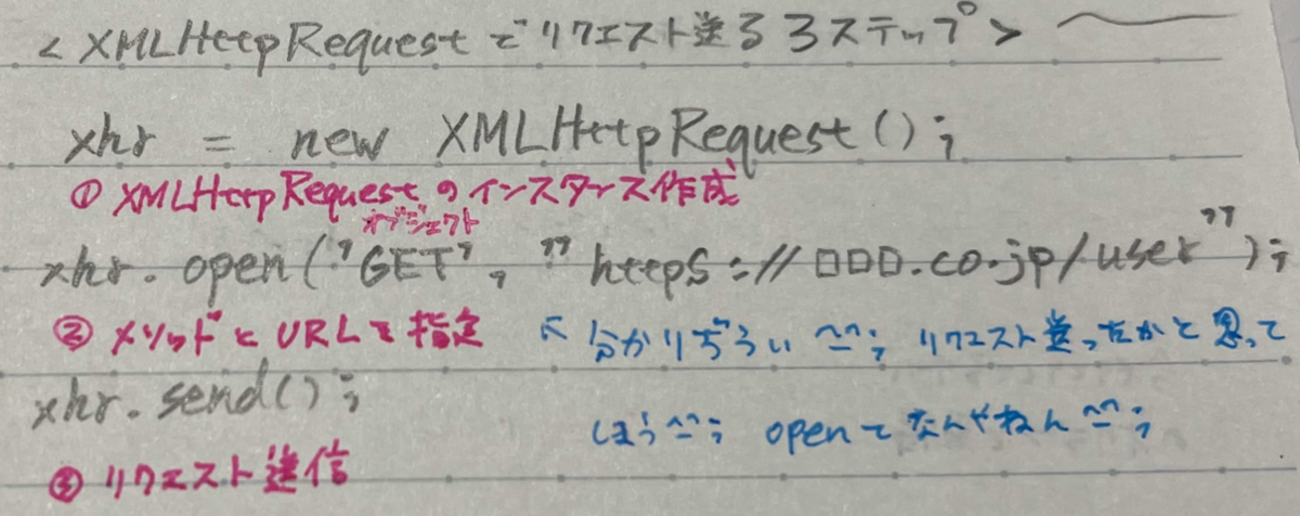 < XMLHttpRequest でリクエスト送る 3ステップ >
xhr = new XMLHttpRequest();
① XMLHttpRequest のインスタンス作成
オブジェクト
xhr.open("GET", "https://□□□.co.jp/user");
② メソッドとURLを指定 ← 分かりづらい ^^; リクエスト送ったかと思って
xhr.send();
しまう^^; openてなんやねん^^;
③ リクエスト送信